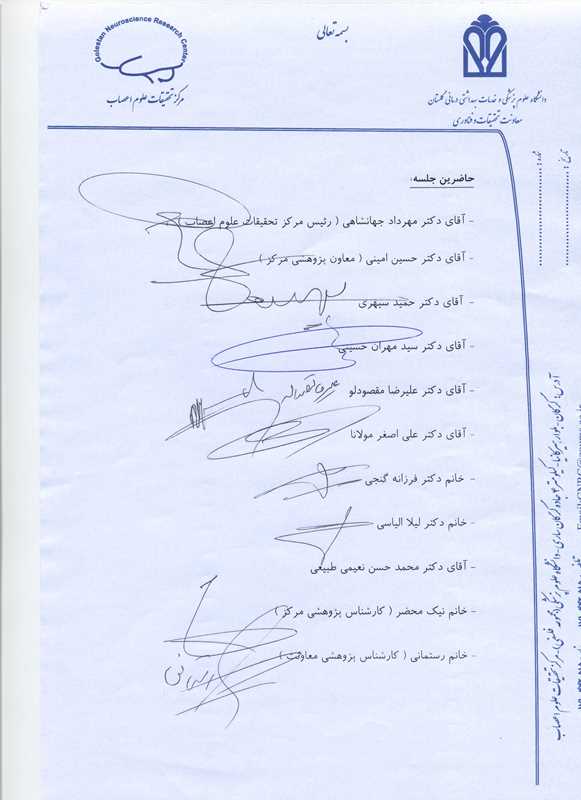 بسمه تعالی
Golestan Neuroscience Research Center
مرکز تحقیقات علوم اعصاب
دانشگاه علوم پزشکی و خدمات بهداشتی درمانی گلستان
معاونت تحقیقات و فناوری
تاریخ :
شماره :
حاضرین جلسه:
- آقای دکتر مهرداد جهانشاهی ( رئیس مرکز تحقیقات علوم اعصاب )
- آقای دکتر حسین امینی ( معاون پژوهشی مرکز )
- آقای دکتر حمید سپهری
- آقای دکتر سید مهران حسینی
- آقای دکتر علیرضا مقصودلو
- آقای دکتر علی اصغر مولانا
- خانم دکتر فرزانه گنجی
- خانم دکتر لیلا الیاسی
- آقای دکتر محمد حسن نعیمی طبیعی
- خانم نیک محضر ( کارشناس پژوهشی مرکز )
- خانم رستمانی ( کارشناس پژوهشی معاونت )